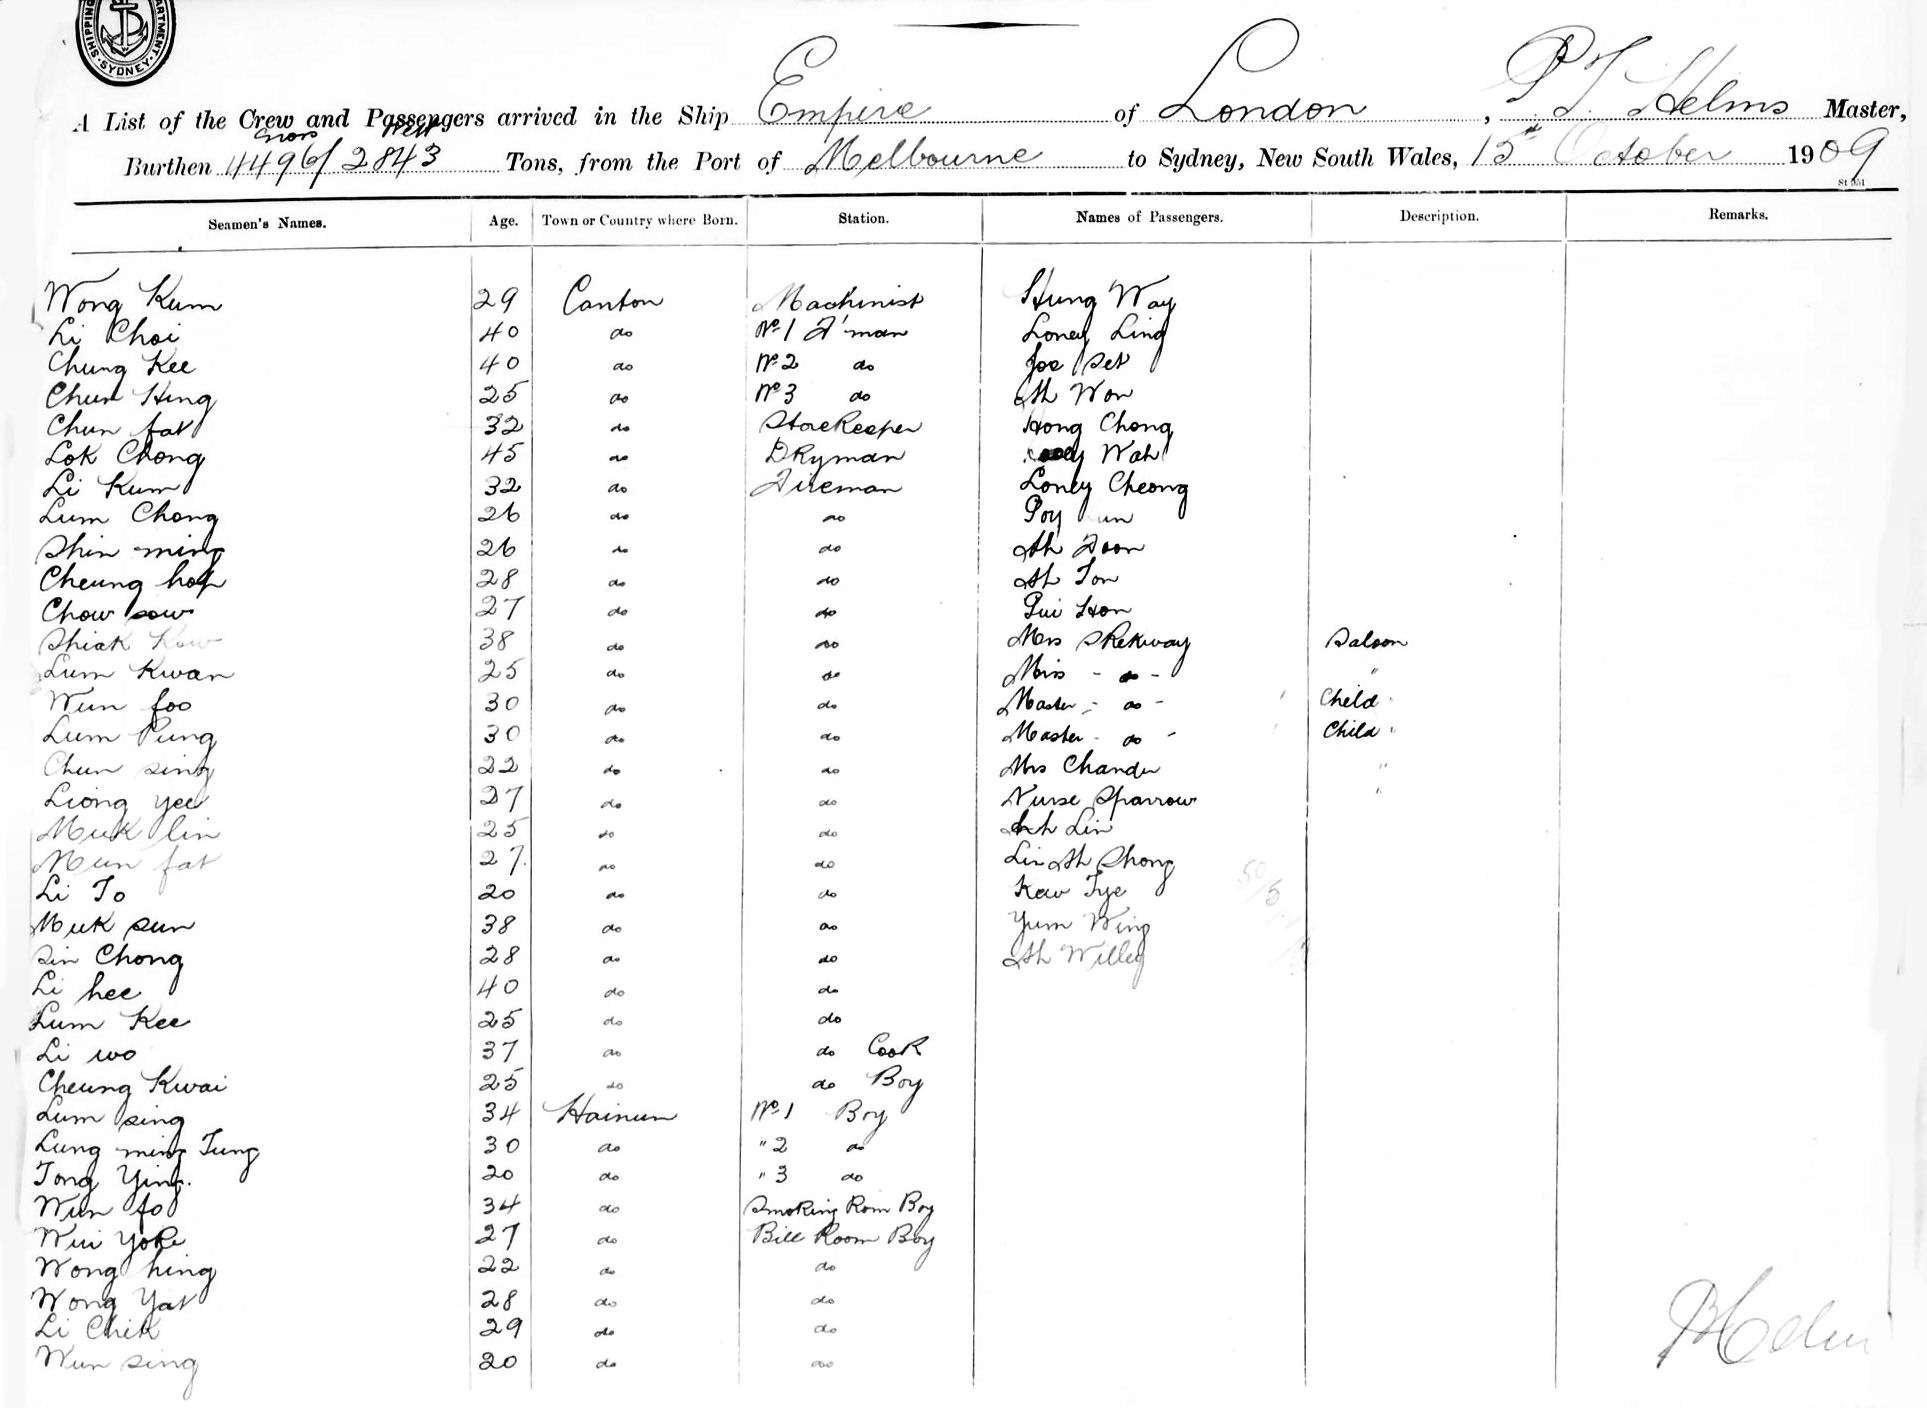 SHIPPING DEPARTMENT · SYDNEY ·
A List of the Crew and Passengers arrived in the Ship Empire of London, P T Helms Master,
Gross Nett
Burthen 4496/2843 Tons, from the Port of Melbourne to Sydney, New South Wales, 15th October 1909
St 951
Seamen's Names. Age. Town or Country where Born. Station. Names of Passengers. Description. Remarks.
Wong Kum 29 Canton Machinist Hung Way
Li Choi 40 do No 1 F'man Loney Ling
Chung Kee 40 do No 2 do Joe Set
Chun Hing 25 do No 3 do Ah Won
Chun fat 32 do Storekeeper Hong Chong
Lok Chong 45 do Dkyman Wah
Li Kum 32 do Fireman Loney Cheong
Lum Chong 26 do do Poy
Shin ming 26 do do Ah Foon
Cheung hop 28 do do Ah Ton
Chow sow 27 do do Pui Hon
Shiak Kow 38 do do Mrs Shekway Saloon
Lum Kwan 25 do do Miss - do - "
Wun foo 30 do do Master - do - Child
Lum Pung 30 do do Master - do - Child "
Chun sing 22 do do Mrs Chander "
Liong yee 27 do do Nurse Sparrow "
Muk lin 25 do do Ah Lin
Mun fat 27 do do Lin Ah Shong
Li To 20 do do Kew Tye
Muk sun 38 do do Yum Wing
Sin Chong 28 do do Ah Willey
Li hee 40 do do
Lum Kee 25 do do
Li wo 37 do do Cook
Cheung Kwai 25 do do Boy
Lum sing 34 Hainun No 1 Boy
Lung ming Tung 30 do " 2 do
Tong Ying. 20 do " 3 do
Wun fo 34 do Smoking Room Boy
Wui Yoke 27 do Bill Room Boy
Wong hing 22 do do
Wong Yat 28 do do
Li Chik 29 do do
Wun sing 20 do do